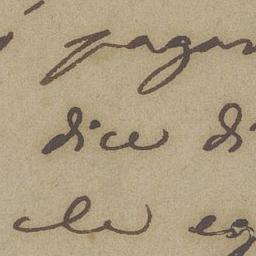 pagar
dice di
che eg